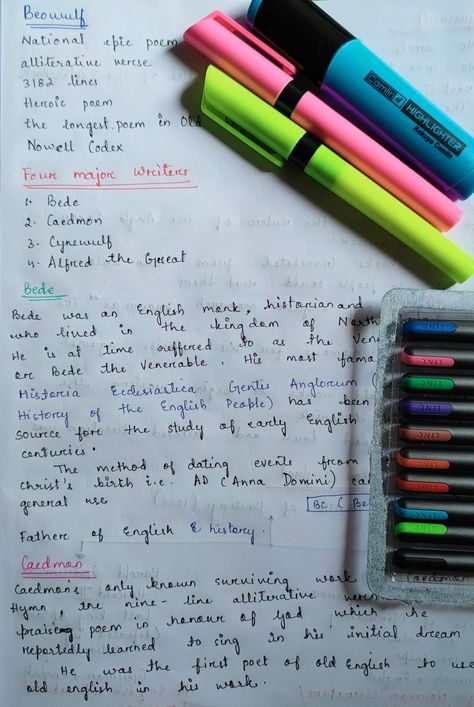 Beowulf
National epic poem
alliterative verse
3182 lines
Heroic poem
the longest poem in Old
Nowell Codex
Four major writers
1. Bede
2. Caedmon
3. Cynewulf
4. Alfred the Great
Bede
Bede was an English monk, historian and
who lived in the kingdom of North
He is at time reffered to as the Vene
or Bede the Venerable. His most famo
Historia Ecclesiastica Gentis Anglorum (
History of the English People) has been
source for the study of early English
centuries.
The method of dating events from
Christ's birth i.e. AD (Anna Domini) ca
general use
BC (Be
Father of English & history.
Caedmon
Caedmon's only known surviving work Caedmon
Hymn, the nine-line alliterative
praising poem in honour of God which he
reportedly learned to sing in his initial dream
He was the first poet of old English to use
old english in his work.
Camlin
HIGHLIGHTER
Kokuyo Camlin
LINC
LINC
LINC
LINC
LINC
LINC
LINC
LINC
LINC